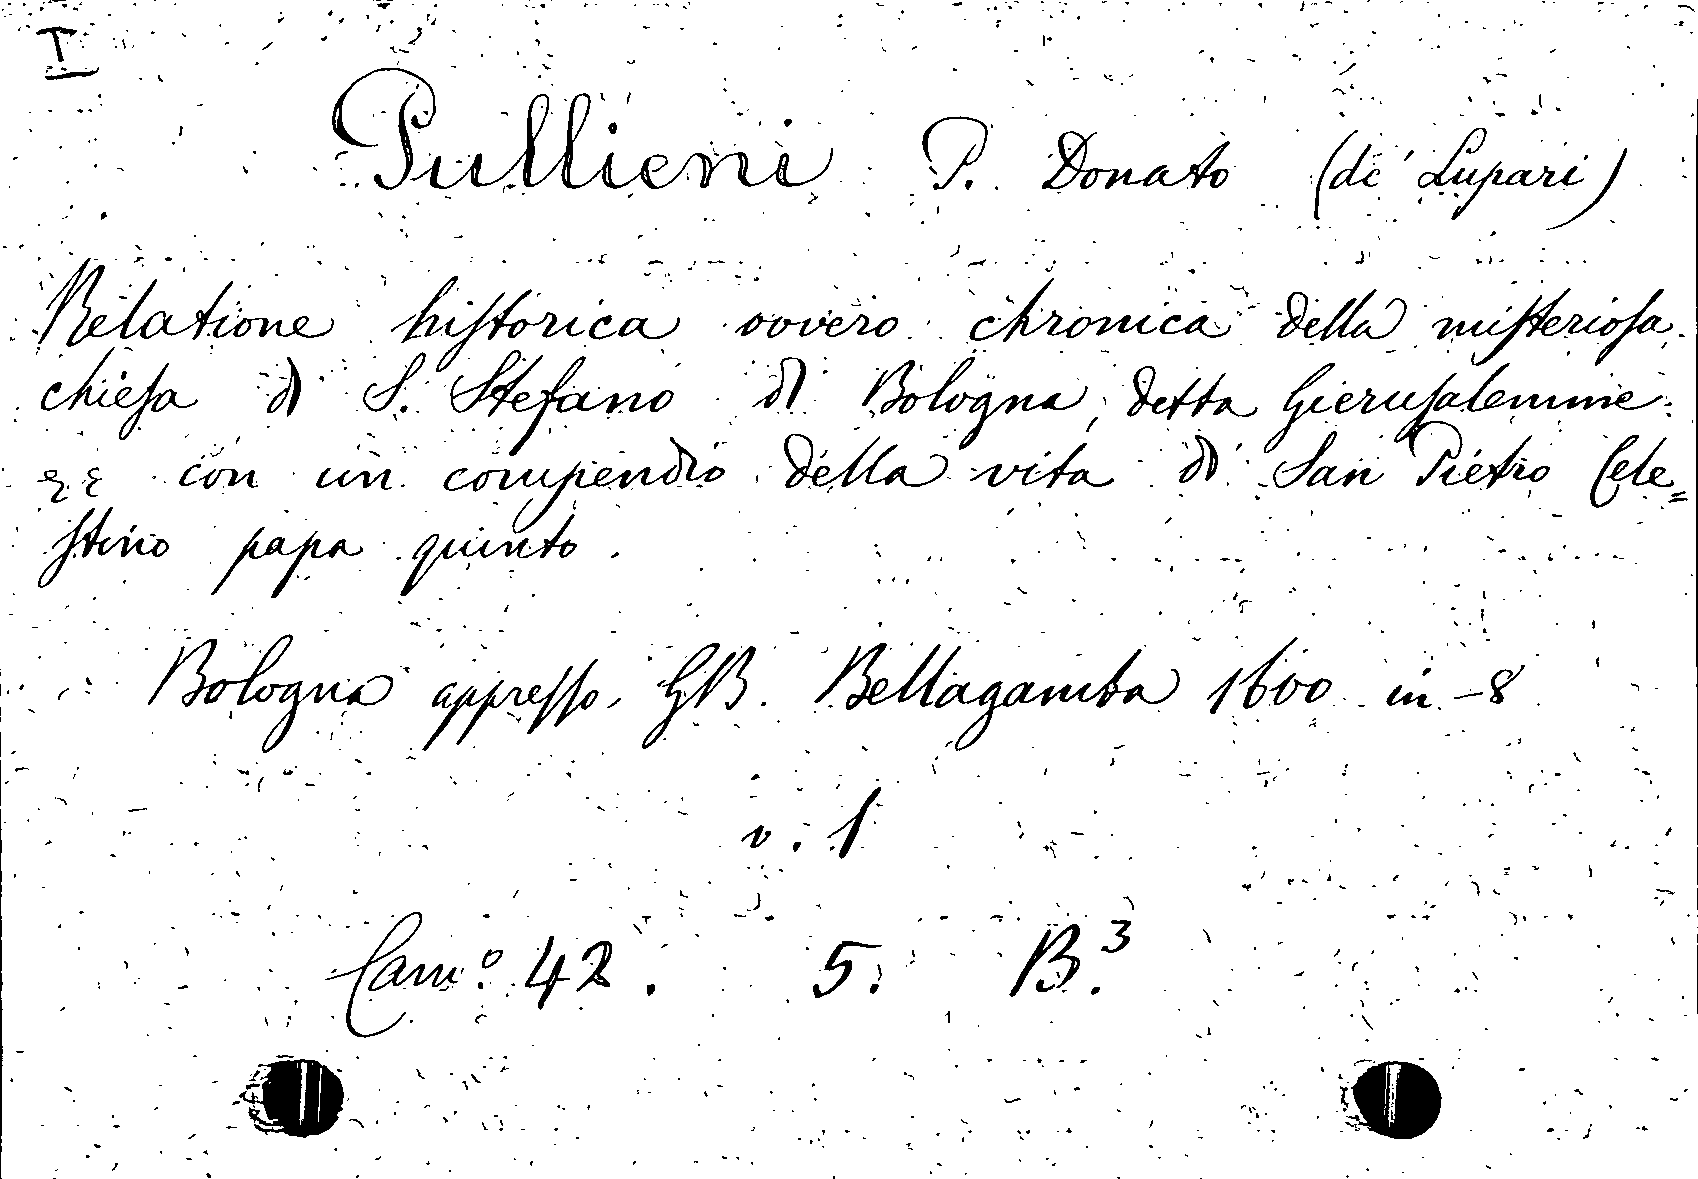 I
Pullieni P. Donato (de' Lupari)
Relatione hiſtorica ovvero chronica della miſterioſa
chieſa di S. Stefano di Bologna, detta Gieruſalemme
con un compendio della vita di San Pietro Cele=
ſtino papa quinto.
Bologna appreſſo GB. Bellagamba 1600 in-8
v. 1
Cam.º 42. 5. B.³